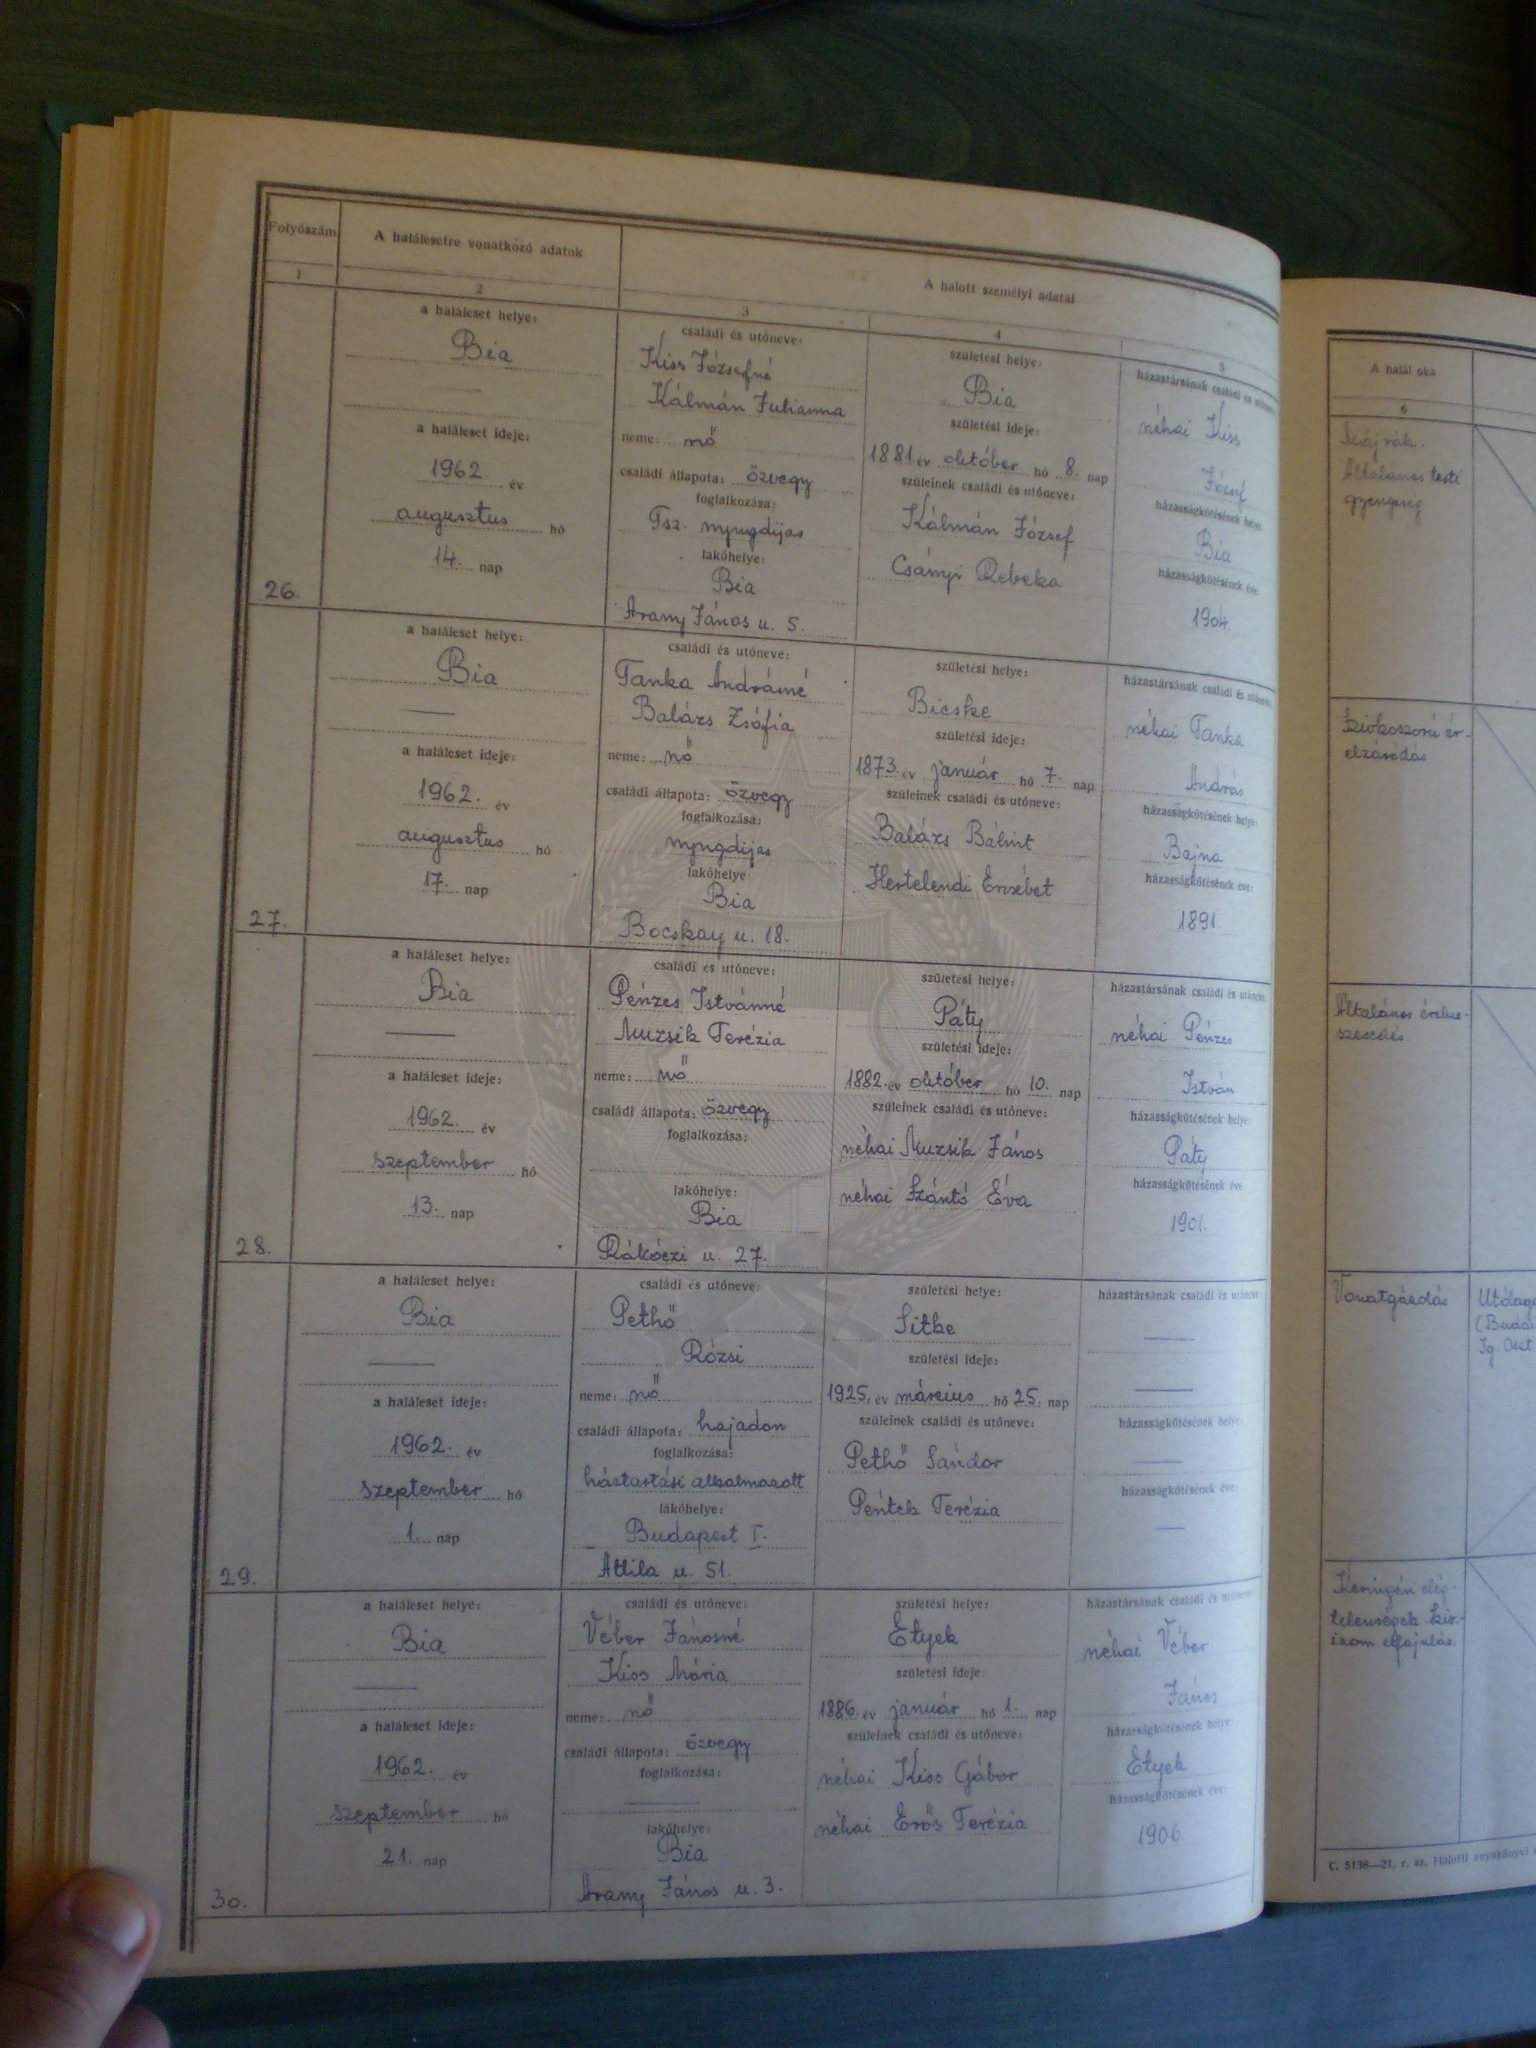 Folyószám
A halálesetre vonatkozó adatok
A halott személyi adatai
1
2
3
4
5
a haláleset helye:
Bia
a haláleset ideje:
1962. év
augusztus hó
14. nap
26.
családi és utóneve:
Kiss Józsefné
Kálmán Julianna
neme: nő
családi állapota: özvegy
foglalkozása:
Tsz. nyugdijas
lakóhelye:
Bia
Arany János u. 5.
születési helye:
Bia
születési ideje:
1881. év október hó 8. nap
szüleinek családi és utóneve:
Kálmán József
Csányi Rebeka
házastársának családi és utóneve:
néhai Kiss
József
házasságkötésének helye:
Bia
házasságkötésének éve:
1904.
a haláleset helye:
Bia
a haláleset ideje:
1962. év
augusztus hó
17. nap
27.
családi és utóneve:
Tanka Andrásné
Balázs Zsófia
neme: nő
családi állapota: özvegy
foglalkozása:
nyugdijas
lakóhelye:
Bia
Bocskay u. 18.
születési helye:
Bicske
születési ideje:
1873. év január hó 7. nap
szüleinek családi és utóneve:
Balázs Bálint
Hertelendi Erzsébet
házastársának családi és utóneve:
néhai Tanka
András
házasságkötésének helye:
Bajna
házasságkötésének éve:
1891.
a haláleset helye:
Bia
a haláleset ideje:
1962. év
szeptember hó
13. nap
28.
családi és utóneve:
Pénzes Istvánné
Muzsik Terézia
neme: nő
családi állapota: özvegy
foglalkozása:
lakóhelye:
Bia
Rákóczi u. 27.
születési helye:
Páty
születési ideje:
1882. év október hó 10. nap
szüleinek családi és utóneve:
néhai Muzsik János
néhai Szántó Éva
házastársának családi és utóneve:
néhai Pénzes
István
házasságkötésének helye:
Páty
házasságkötésének éve
1901.
a haláleset helye:
Bia
a haláleset ideje:
1962. év
szeptember hó
1. nap
29.
családi és utóneve:
Pethő
Rózsi
neme: nő
családi állapota: hajadon
foglalkozása:
háztartási alkalmazott
lakóhelye:
Budapest I.
Attila u. 51.
születési helye:
Sitke
születési ideje:
1925. év március hó 25. nap
szüleinek családi és utóneve:
Pethő Sándor
Péntek Terézia
házastársának családi és utóneve:
házasságkötésének helye:
házasságkötésének éve:
a haláleset helye:
Bia
a haláleset ideje:
1962. év
szeptember hó
21. nap
30.
családi és utóneve:
Véber Jánosné
Kiss Mária
neme: nő
családi állapota: özvegy
foglalkozása:
lakóhelye:
Bia
Arany János u. 3.
születési helye:
Etyek
születési ideje:
1886. év január hó 1. nap
szüleinek családi és utóneve:
néhai Kiss Gábor
néhai Erős Terézia
házastársának családi és utóneve
néhai Véber
János
házasságkötésének helye:
Etyek
házasságkötésének éve
1906.
A halál oka
6
Májrák.
Általános testi
gyengeség
Szívkoszorú ér-
elzáródás
Általános érelme-
szesedés.
Vonatgázolás
Utólag
(Budai
Ig. Oszt
Keringési elég-
telenségek. Szív-
izom elfajulás.
C. 5136—21. r. sz. Halotti anyakönyvi